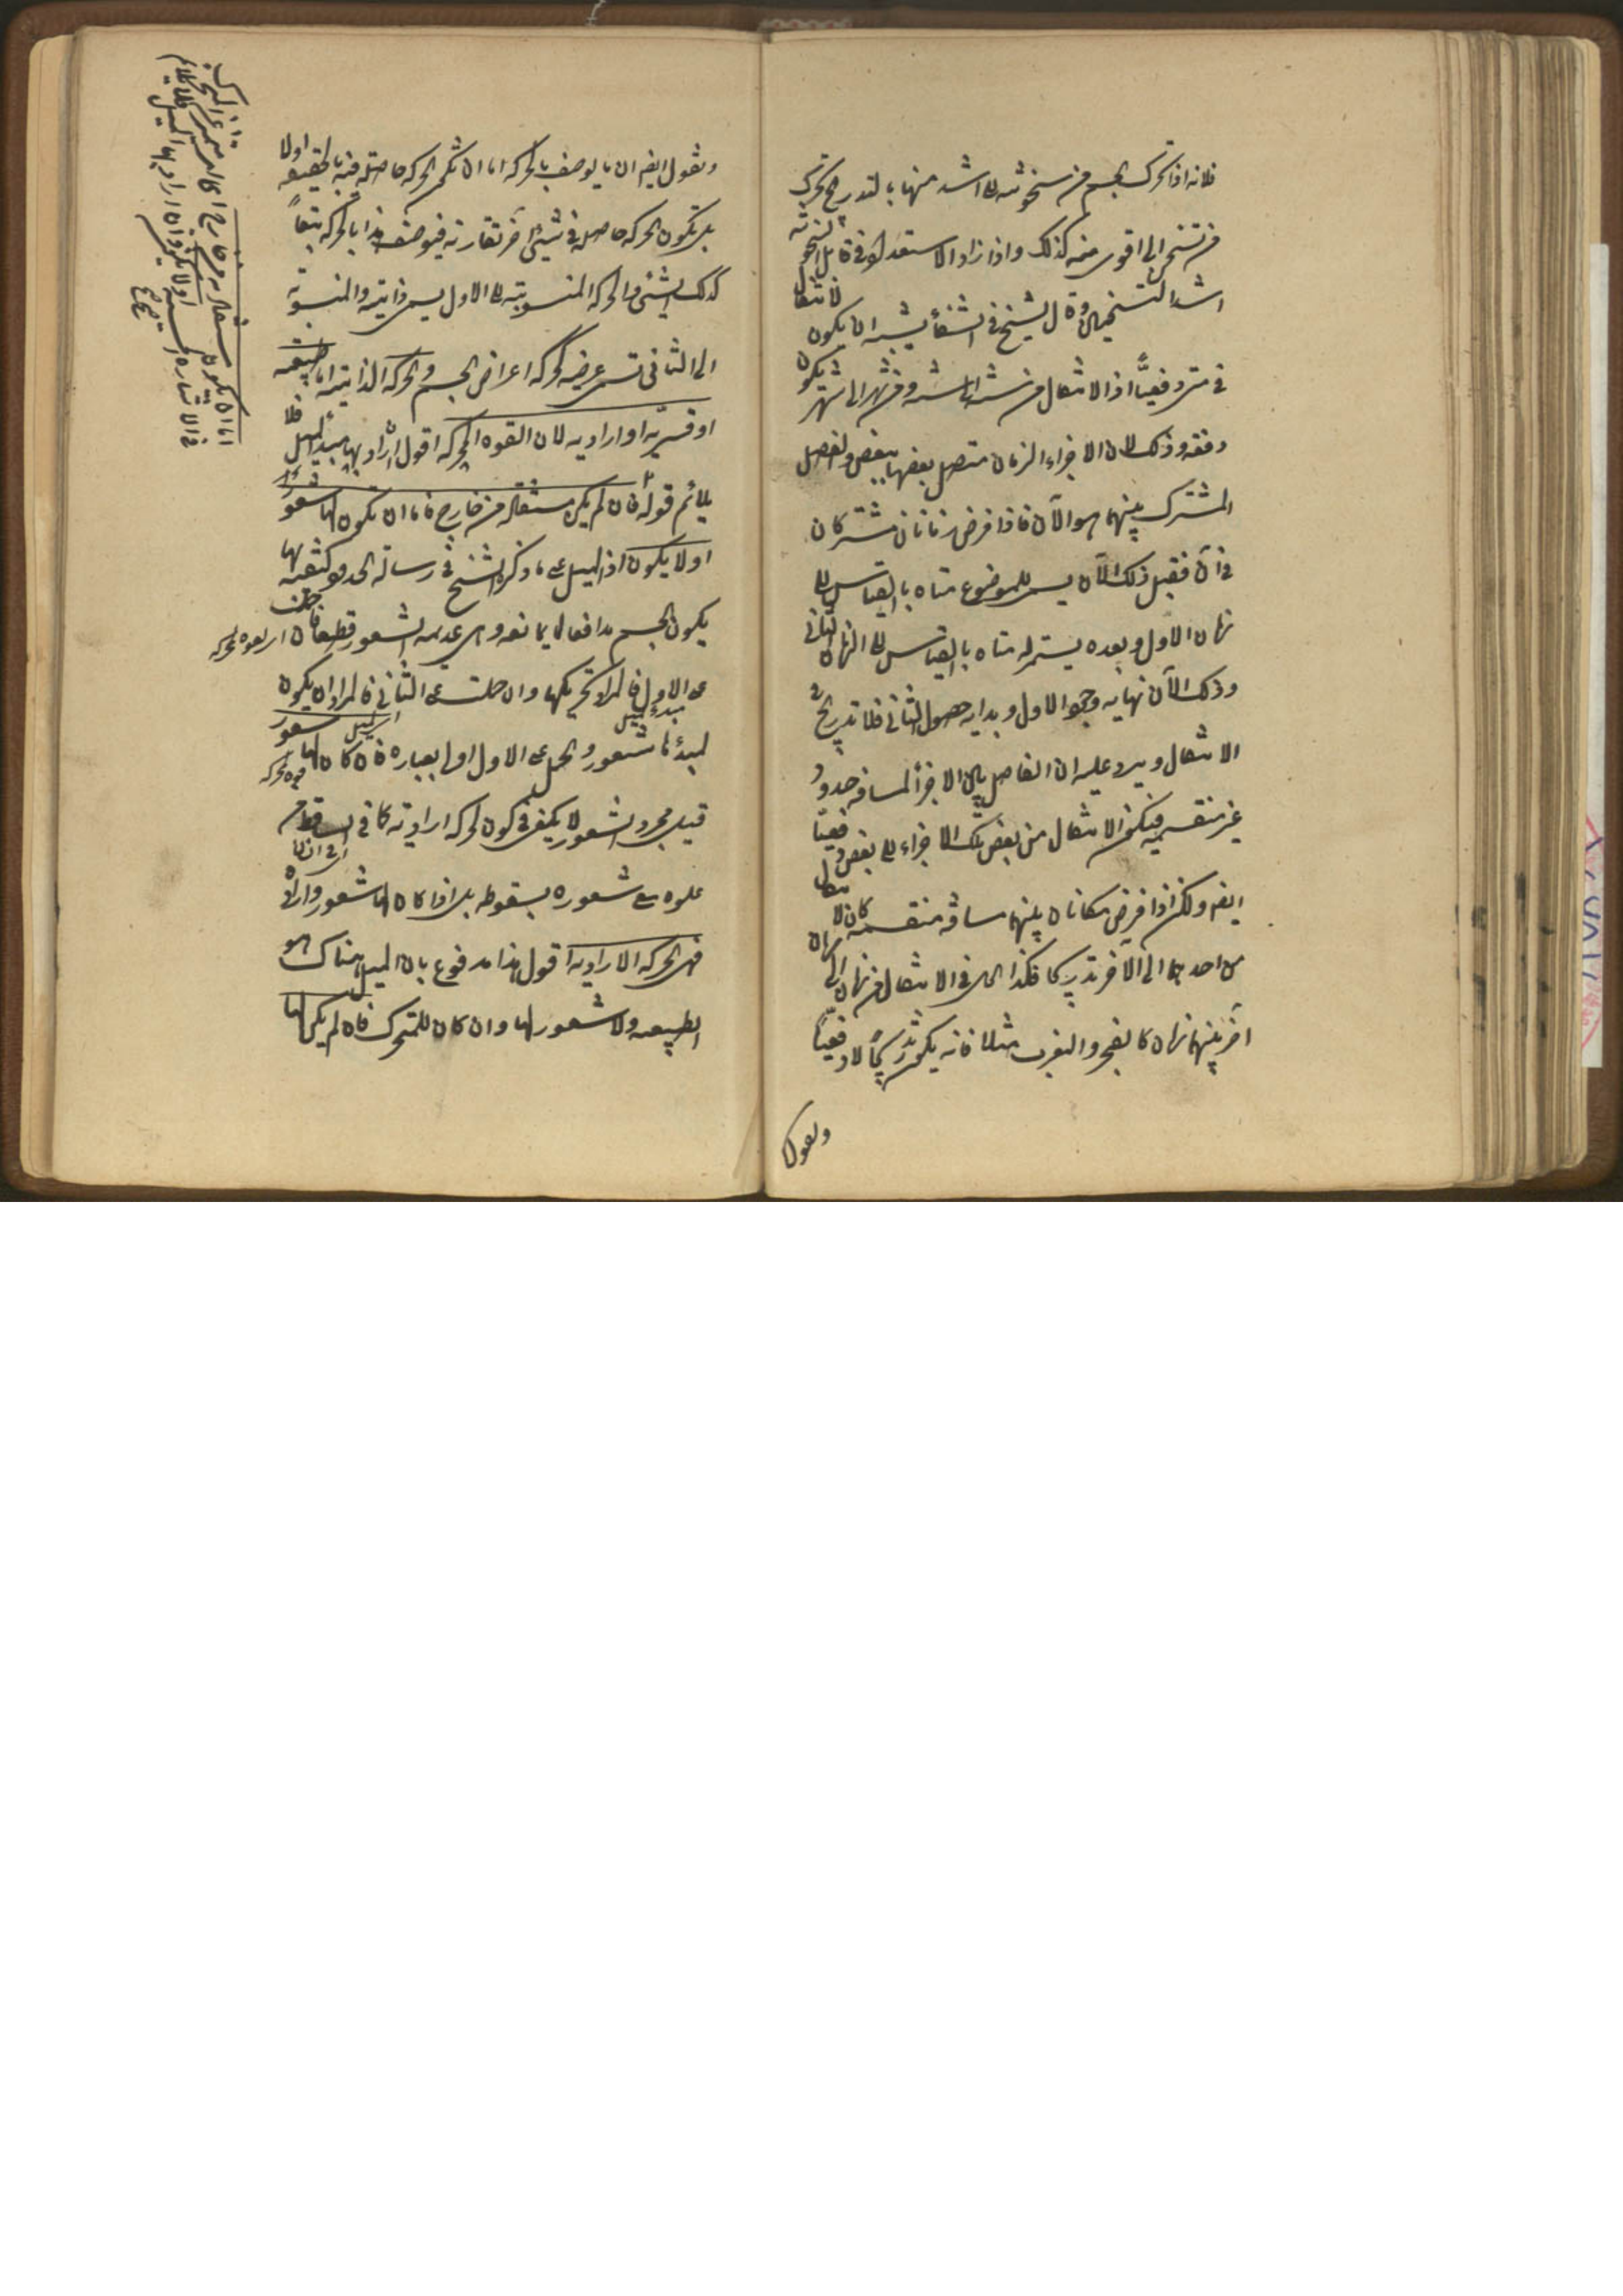 فلانه اذا تحرك الجسم من سخونته الى اشد منها بالتدريج تحرك
من تسخن الى اقوى منه كذلك واذا زاد الاستعداد فى قابل السخونة
اشتد التسخين وقال الشيخ فى الشفاء يشبه ان يكون الانتقال
فى متى دفعيًّا اذ الانتقال من سنة الى سنة ومن شهر الى شهر يكون
دفعة وذلك لان الاجزاء الزمان متصل بعضها ببعض والفصل
المشترك بينهما هو الآن فاذا فرض زمانان مشتركان
فى آن فقبل ذلك الآن يستمر للموضوع متاه بالقياس الى
زمان الاول وبعده يستمر له متاه بالقياس الى الزمان الثانى
وذلك الآن نهاية وجود الاول وبداية حصول الثانى فلا تدريج فى
الانتقال ويرد عليه ان الفاصل بين الاجزاء المسافه حدود
غير منقسمة فيكون الانتقال من بعض تلك الاجزاء الى بعض دفعيًا
ايضا ولكن اذا فرض مكانان بينهما مسافة منقسمة كان الانتقال
من احدهما الى الآخر تدريجيا فكذا الحال فى الانتقال من زمان الى زمان
آخر بينهما زمان كالفجر والمغرب مثلا فانه يكون تدريجيًا لا دفعيًا
ونقول
ونقول ايضا ان ما يوصف بالحركه اما ان تكون الحركه حاصلة فيه بالحقيقه اولا
بل تكون الحركه حاصله فى شيئ آخر تقارنه فيوصف هذا بالحركه تبعاً
لذلك الشئ والحركه المنسوبته الى الاول يسمى ذاتية والمنسوبة
الى الثانى تسمى عرضيه كحركه اعراض الجسم والحركه الذاتية اما طبيعية
او قسريّه او اراديه لان القوه المحركه اقول ان اراد بها مبدأ الميل فلا
يلائم قوله فان لم يكن مستفاده من خارج فاما ان تكون لها شعور
اولا يكون اذ الميل على ما ذكره الشيخ فى رسالة الحدود كيفية بها
يكون الجسم مدافعا لما يمانعه وهى عديمه الشعور قطعا فان حملت القوه المحركه
على الاول فالمراد تحريكها وان حملت على الثانى فالمراد ان يكون
لمبدئها شعور والحمل على الاول اولى بعبارة فان كان لها شعور
قيل مجرد الشعور لا يكفى فى كون الحركه اراديه كما فى الساقط من
علوه مع شعوره بسقوطه بل اذا كان لها شعور وارادة
فهى الحركه الاراديه اقول هذا مدفوع بان الميل هناك هو
الطبيعه ولا شعور لها وان كان للمتحرك فان لم يكن لها